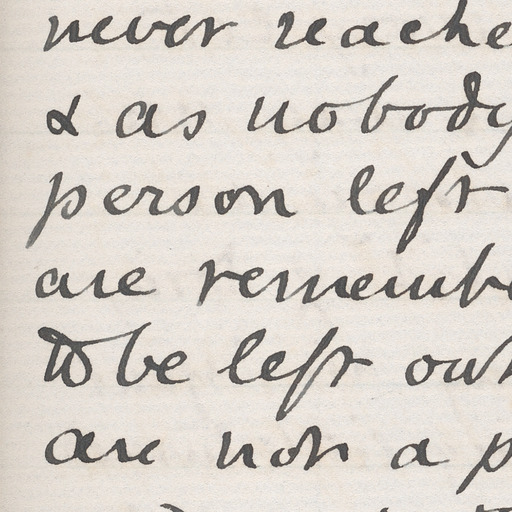 never reache
& as nobody
person left
are remembe
to be left out
are not a p